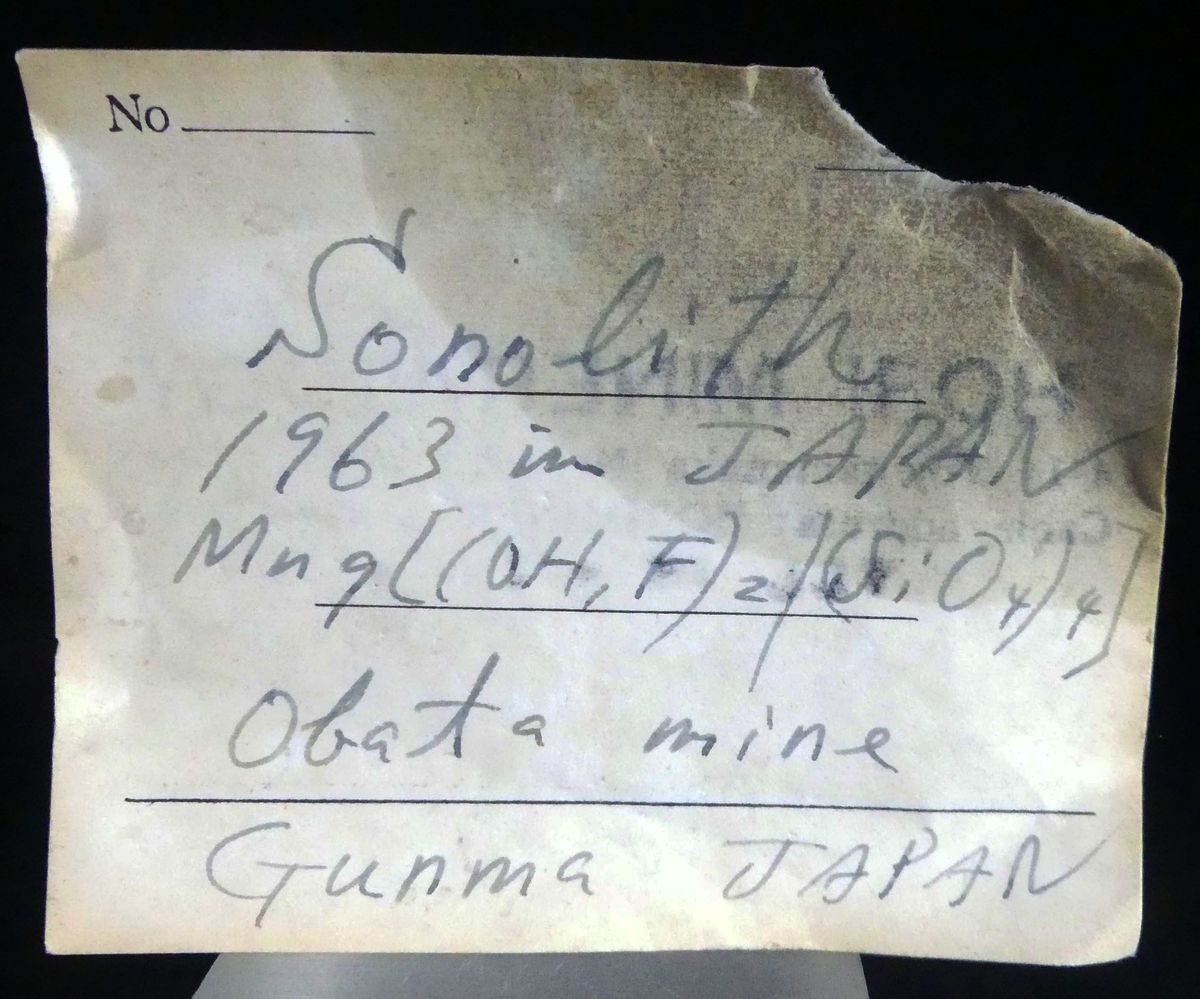 No
Sonolith
1963 in JAPAN
Mn9[(OH,F)2/(SiO4)4]
Obata mine
Gunma JAPAN